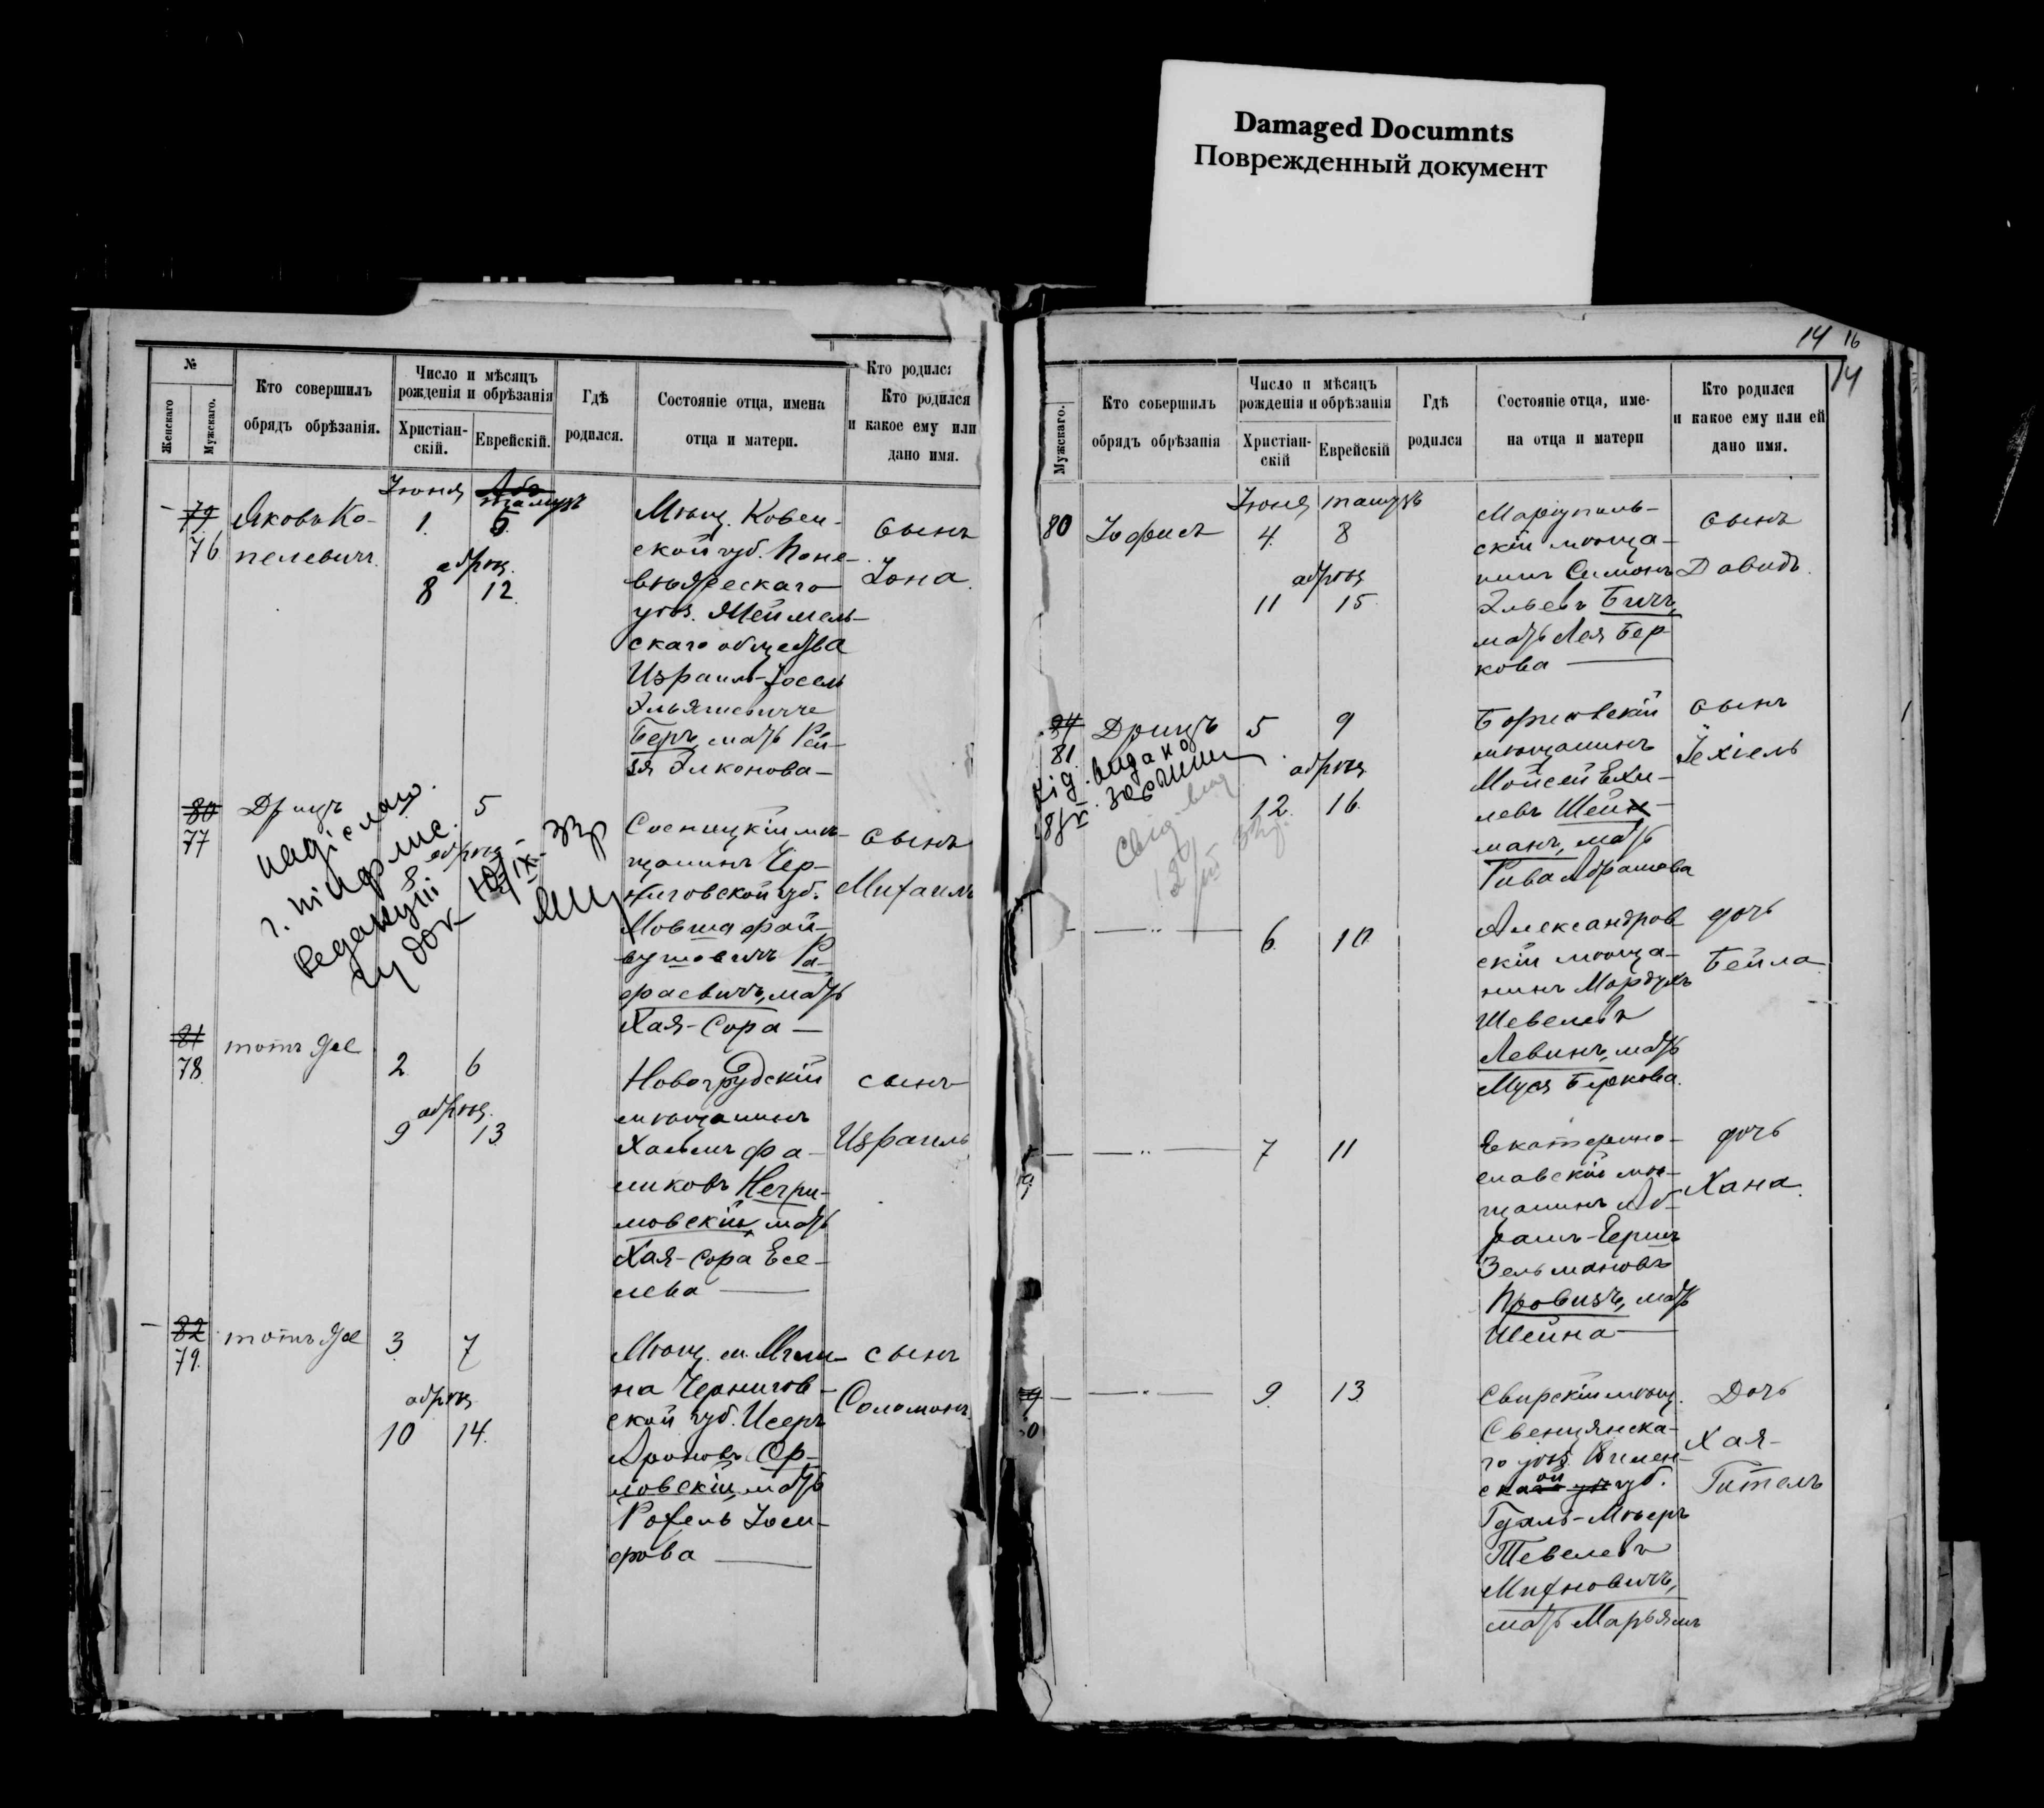 Damaged Documnts
Поврежденный документ
№
Женскаго
Мужскаго.
Кто совершилъ
обрядъ обрѣзанія.
Число и мѣсяцъ
рожденія и обрѣзанія
Христіан-
скій.
Еврейскій.
Гдѣ
родился.
Состояніе отца, имена
отца и матери.
Кто родился
Кто родился
и какое ему или
дано имя.
Іюня
тамузъ
79
76
Яковъ Ко-
пелевичъ.
1.
5
обрѣз.
8
12.
Мѣщ. Ковен-
ской губ. Поне-
вѣжскаго
уѣз.
скаго общества
Израиль-Іосель
Беръ, мать
сынъ
Іона.
80
77
5
мѣ-
щанинъ Чер-
ниговской губ.
Мовша Фай-
вушовичъ Ра-
фаевичъ, мать
Хая-Сора —
сынъ
Михаилъ
81
78.
тотъ же
2
6
обрѣз.
9
13
Новогрудскій
мѣщанинъ
мать
Хая-Сора Есе-
лева —
сынъ
Израиль
82
79.
тотъ же
3
7
обрѣз
10
14.
Мѣщ. м. Мгли-
на Чернигов-
ской губ. Исеръ
Ароновъ Ор-
ловскій, мать
Рохель Іоси-
фова —
сынъ
Соломонъ.
14 16
14
Мужскаго.
Кто совершилъ
обрядъ обрѣзанія
Число и мѣсяцъ
рожденія и обрѣзанія
Христіан-
скій
Еврейскій
Гдѣ
родился
Состояніе отца, име-
на отца и матери
Кто родился
и какое ему или ей
дано имя.
Іюня
тамузъ
80
Іофисъ
4.
8
обрѣз
11
15.
Маріуполь-
скій мѣща-
нинъ Симонъ
Эльевъ Бичъ,
мать Лея Бер-
кова —
сынъ
Давидъ.
81.
5
9
обрѣз
12.
16.
Борисовскій
мѣщанинъ
Мойсей Ехи-
левъ Шейн-
манъ, мать
Рива Абрамова
сынъ
Іехіель
6.
10
Александров-
скій мѣща-
нинъ Мордухъ
Шевелевъ
Левинъ, мать
Муся Беркова.
дочь
Бейла
7
11
Екатерино-
славскій мѣ-
щанинъ Аб-
рамъ-Гершъ
Зельмановъ
Провизъ, мать
Шейна —
дочь
Хана.
9.
13.
Свирскій мѣщ.
Свенцянска-
го уѣз. Вилен-
ской губ.
Тевелевъ
Михновичъ,
мать Марьямъ
Дочь
Хая-
Гитель